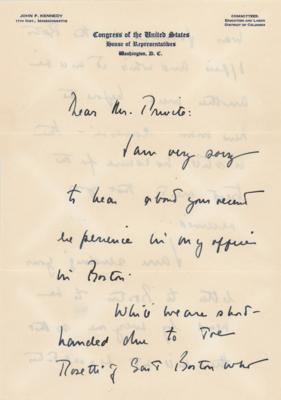 JOHN F. KENNEDY
11TH DIST., MASSACHUSETTS
COMMITTEES:
EDUCATION AND LABOR
DISTRICT OF COLUMBIA
Congress of the United States
House of Representatives
Washington, D. C.
Dear Mr.
I am very sorry
to hear about your recent
experience in my office
in Boston.
While we are short-
handed due to Joe
Rosetti of East Boston who